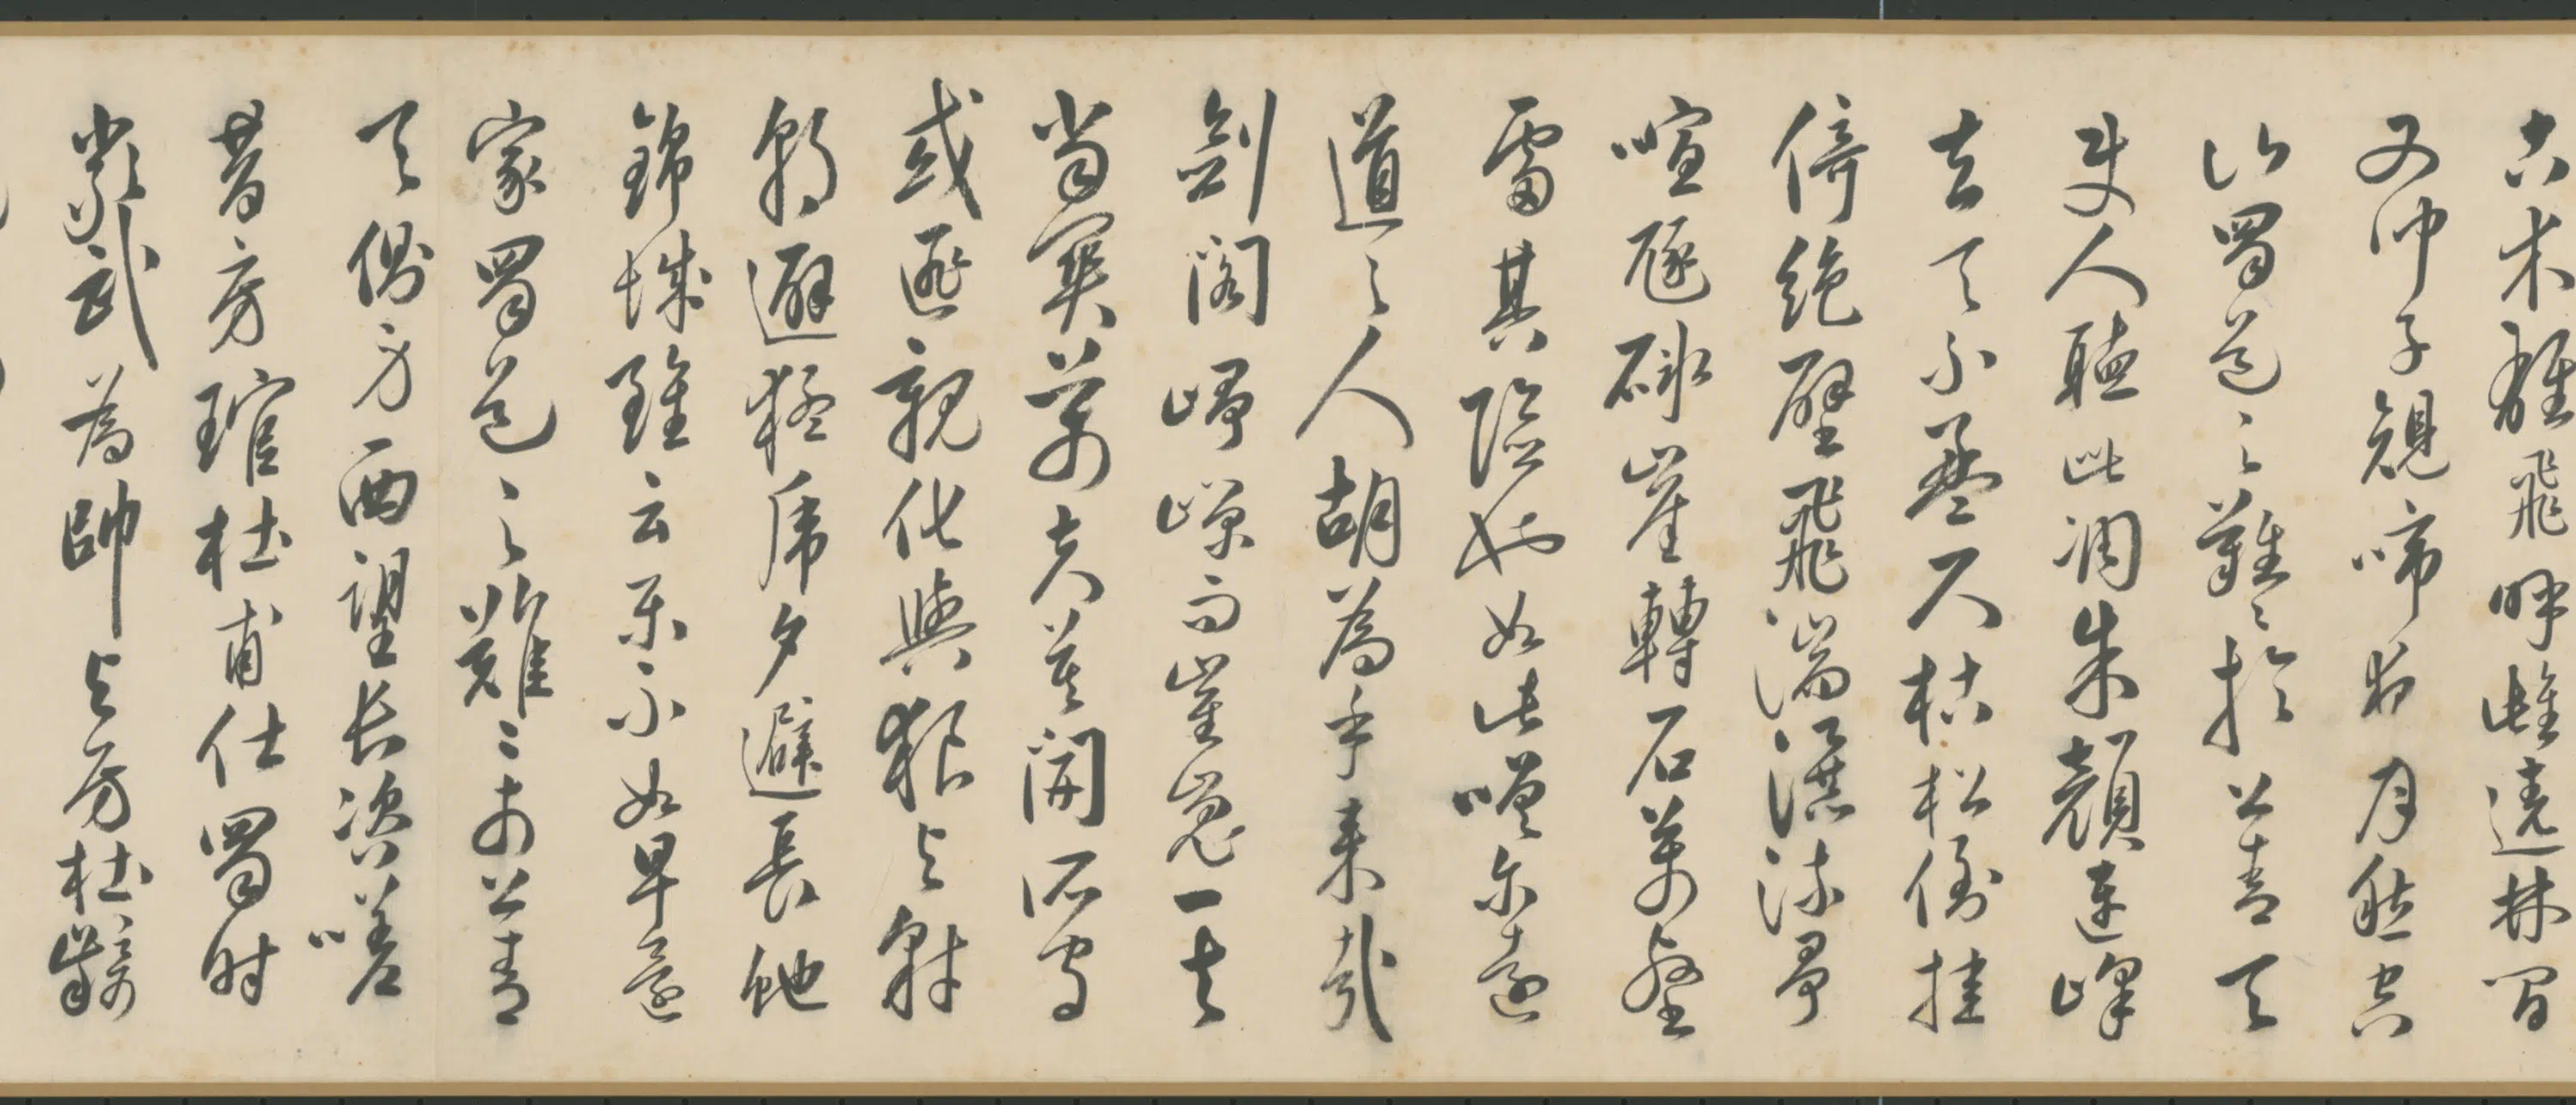 古木雄飛呼雌遶林間
又聞子規啼夜月愁空
山蜀道之難々於上青天
使人聽此凋朱顏連峰
去天不盈尺枯松倒挂
倚絕壁飛湍瀑流爭
喧豗砯崖轉石萬壑
雷其險也如此嗟尔遠
道之人胡為乎来哉
劍閣崢嶸而崔嵬一夫
當關萬夫莫開所守
或匪親化與狼与豺
朝避猛虎夕避長蛇
錦城雖云樂不如早還
家蜀道之難々於上青
天側身西望長咨嗟
昔房琯杜甫仕蜀時
嚴武為帥与房杜齮